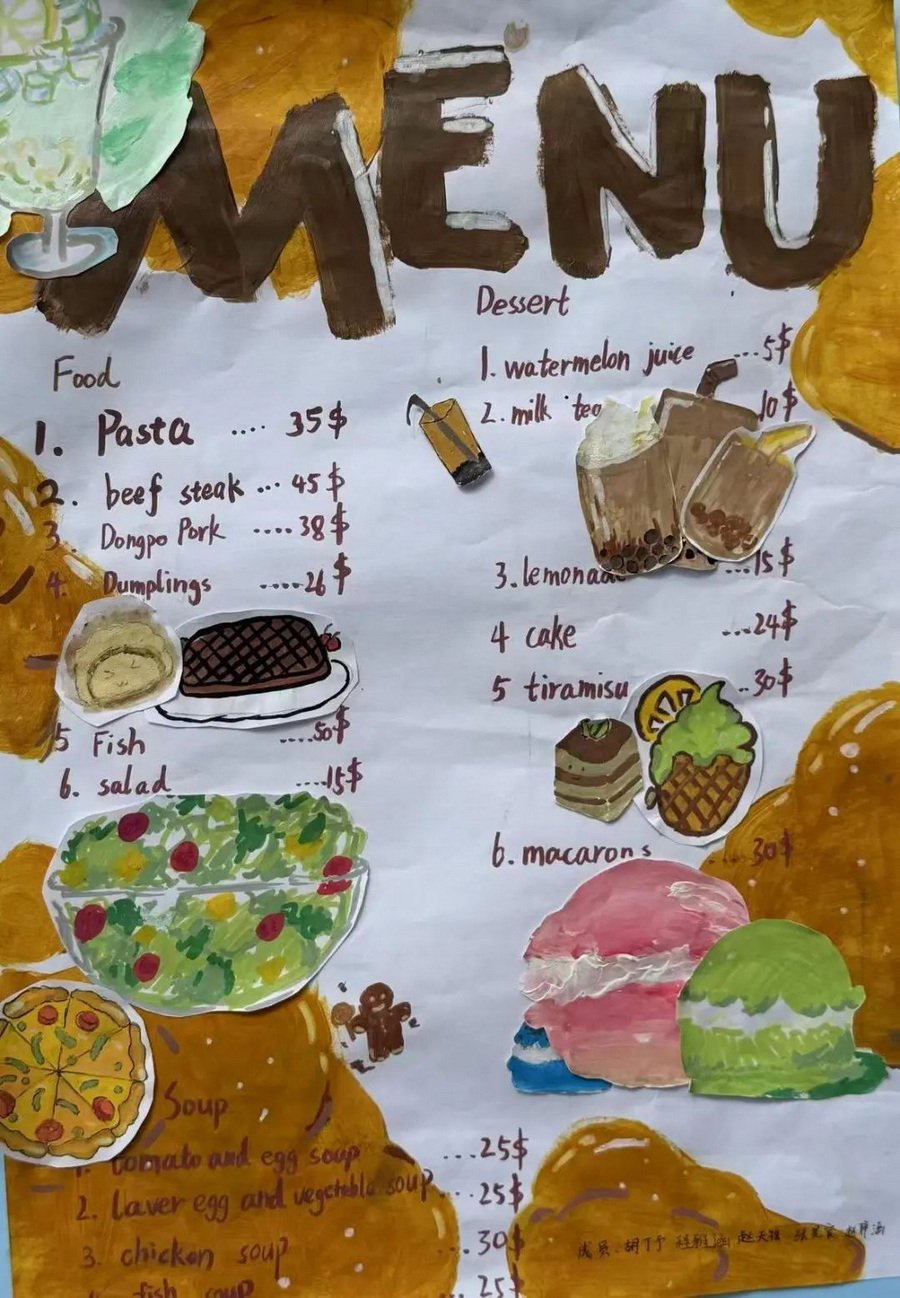 MENU
Food
1. Pasta .... 35$
2. beef steak ... 45$
3. Dongpo Pork ....38$
4. Dumplings ....26$
5 Fish ....50$
6. salad ....15$
Dessert
1. watermelon juice ...5$
2. milk tea 10$
3. lemonade ...15$
4 cake ...24$
5 tiramisu ..30$
6. macarons ....30$
Soup
1. tomato and egg soup ...25$
2. laver egg and vegetable soup... 25$
3. chicken soup ...30$
4. fish soup 25$
成员:胡丁予 赵天祺